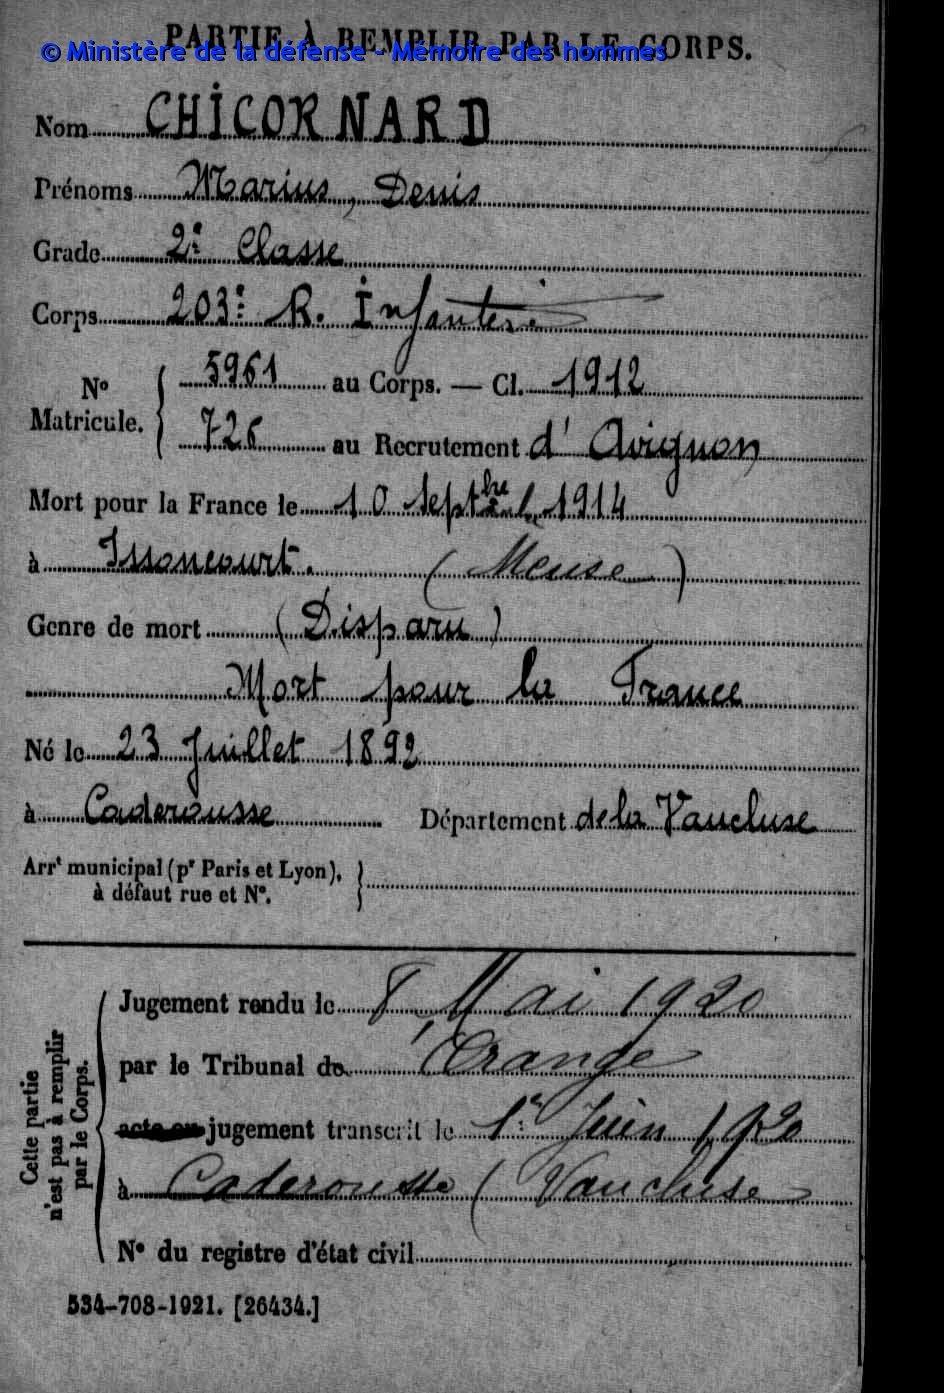 PARTIE À REMPLIR PAR LE CORPS.
© Ministère de la défense - Mémoire des hommes
Nom CHICORNARD
Prénoms Marius, Denis
Grade 2e Classe
Corps 203e R. Infanterie
No Matricule. { 5961 au Corps. — Cl. 1912
726 au Recrutement d'Avignon
Mort pour la France le 10 Septbre 1914
à Issoncourt. (Meuse)
Genre de mort (Disparu)
Mort pour la France
Né le 23 Juillet 1892
à Caderousse Département de la Vaucluse
Arrt municipal (pr Paris et Lyon),
à défaut rue et No.
Cette partie n'est pas à remplir par le Corps.
Jugement rendu le 8 Mai 1920
par le Tribunal de Orange
acte ou jugement transcrit le 1er Juin 1920
à Caderousse (Vaucluse
No du registre d'état civil
534-708-1921. [26434.]